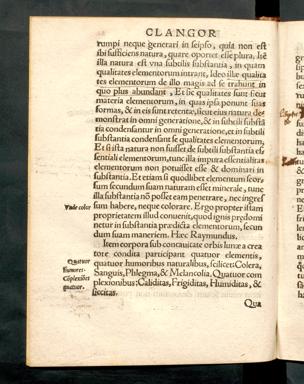 CLANGOR
rumpi neque generari in seipso, quia non est
ibi sufficiens natura, quare oportet esse plura, licet
illa natura est vna subtilis substantia, in quam
qualitates elementorum intrant, Ideo illæ qualita
tes elementorum de illo magis ad se trahunt in
quo plus abundant, Et sic qualitates sunt sicut
materia elementorum, in quas ipsa ponunt suas
formas, & in eis sunt retentæ, sicut eius natura de
monstrat in omni generatione, & in subtili substã
tia condensantur in omni generatione, et in subtili
substantia condensant se qualitates elementorum,
Et si ista natura non fuisset de subtili substantia es
sentiali elementorum, tunc illa impura essentialitas
elementorum non potuisset esse & dominari in
substantia. Et etiam si quodlibet elementum seor,
sum secundum suam naturam esset minerale, tunc
illa substantia nõ posset eam penetrare, nec ingres
sum habere, neque colorare. Ergo propter istam
proprietatem illud conuenit, quod ignis predomi
netur in substantia prædicta elementorum, secun
dum suam maneriem. Hæc Raymundus.
Vnde color
Item corpora sub concauitate orbis lunæ a crea
tore condita participant quatuor elementis,
quatuor humoribus naturalibus, scilicet: Colera,
Sanguis, Phlegma, & Melancolia. Quatuor com
plexionibus: Caliditas, Frigiditas, Humiditas, &
siccitas.
Quatuor
humores.
Cõplexiões
quatuor.
Qua